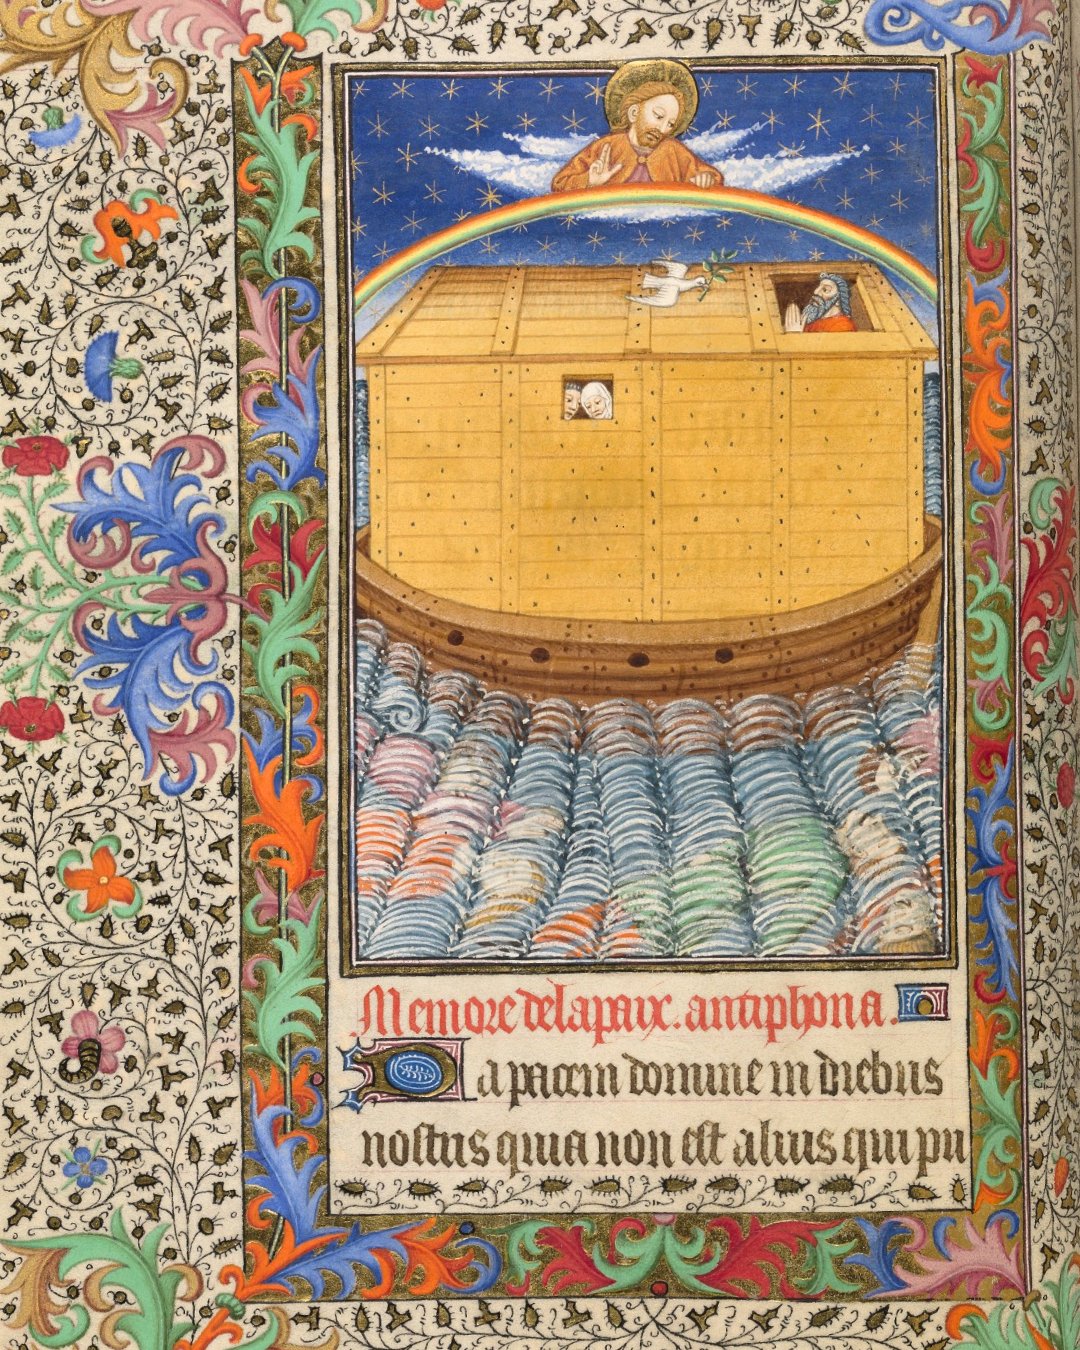 Memore de la paix. antiphona.
Da pacem domine in diebus
nostris quia non est alius qui pu